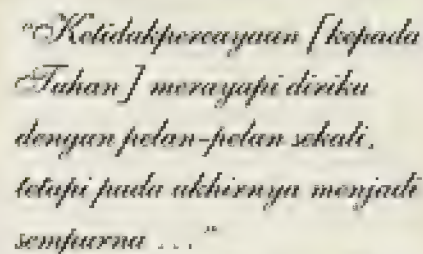 "Ketidakpercayaan [kepada
Tuhan] merayapi diriku
dengan pelan-pelan sekali,
tetapi pada akhirnya menjadi
sempurna ..."